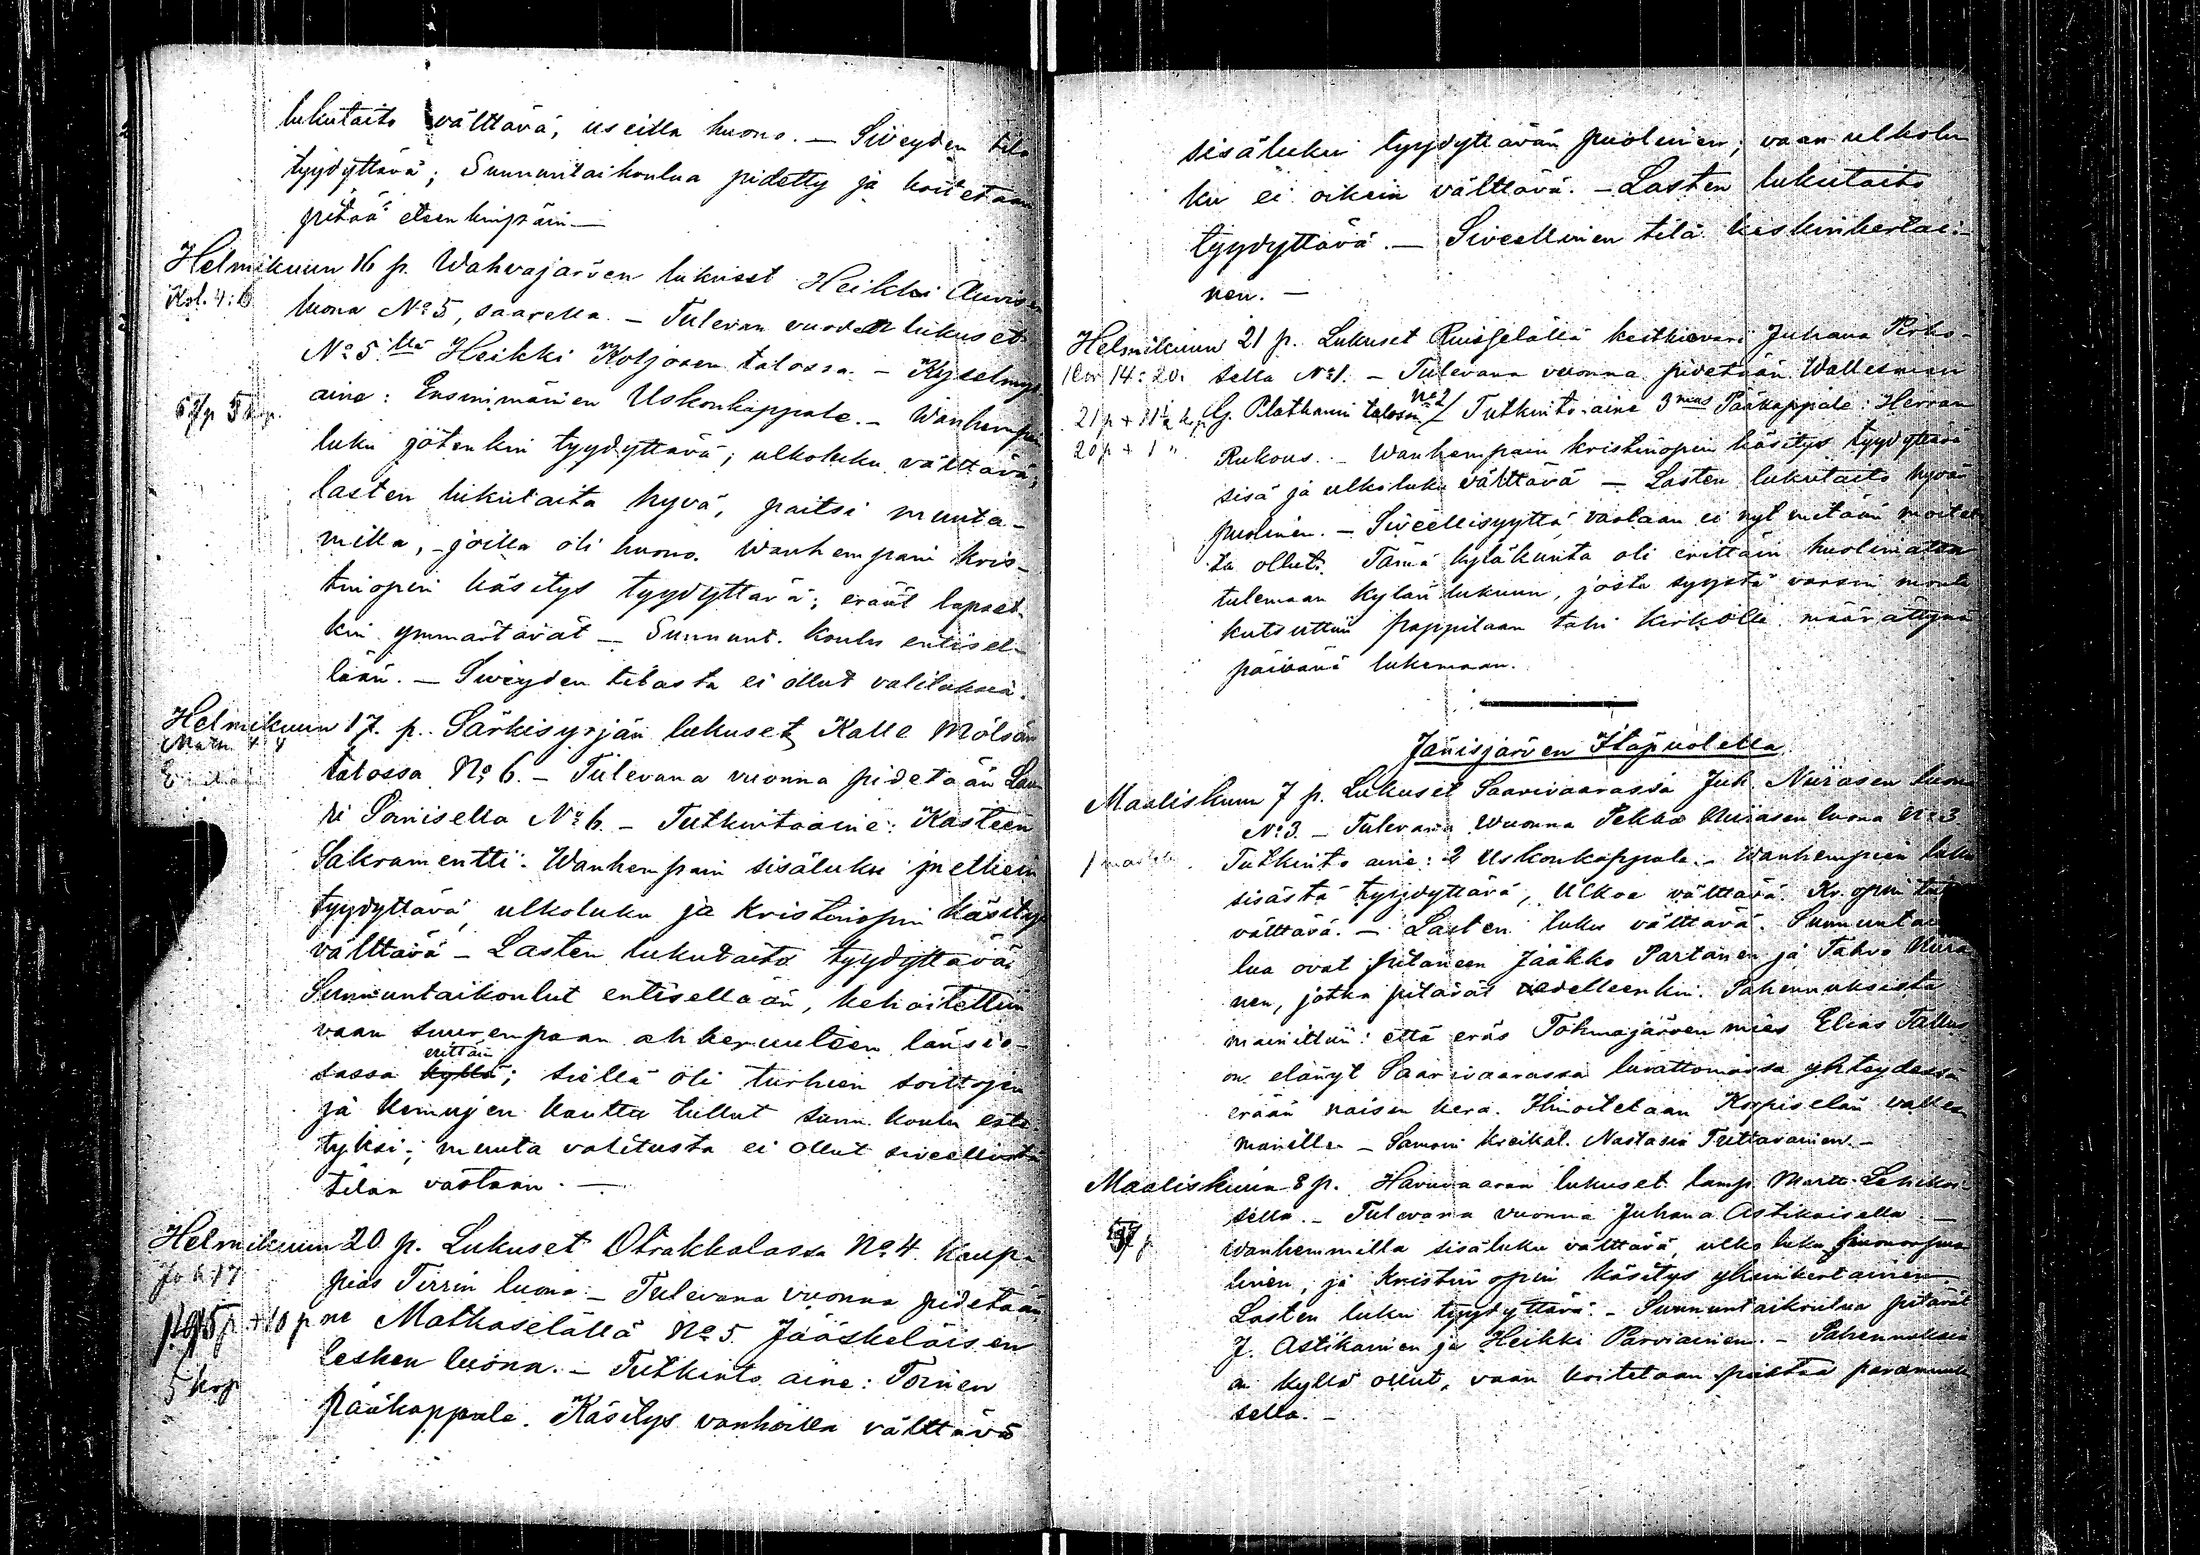 lukutaito välttävä, useilla huono. — Siveyden tila
tyydyttävä; Sunnuntaikoulua pidetty ja koitetaan
pitää eteenkinpäin —
Helmikuun 16 p. Wahvajärven lukuset Heikki
Kol. 4:6
luona No 5, saarella. — Tulevan vuoden lukuset
No 5 llä Heikki Koljosen talossa. — Kyselmys
aine: Ensimmäinen Uskonkappale. — Wanhempain
5 kop.
luku jotenkin tyydyttävä; ulkoluku välttävä;
lasten lukutaito hyvä, paitsi muuta-
milla, joilla oli huono. Wanhempain kris-
tinopin käsitys tyydyttävä; eräät lapset-
kin ymmärtävät — Sunnunt. koulu entisel-
lään. — Siveyden tilasta ei ollut valituksia.
Helmikuun 17. p. Särkisyrjän lukuset Kalle Mölsän
talossa No 6. — Tulevana vuonna pidetään Lau-
ri Poinisella No 6. — Tutkintoaine: Kasteen
Sakramentti. Wanhempain sisäluku melkein
tyydyttävä, ulkoluku ja kristinopin käsitys
välttävä — Lasten lukutaito tyydyttävä.
Sunnuntaikoulut entisellään, kehoitettiin
vaan suurempaan ahkeruuteen länsio-
sassa kyllä; siellä oli turhien soittojen
erittäin
ja kemujen kautta tullut sunn. koulu este-
tyksi; muuta valitusta ei ollut siveellistä
tilaa vastaan. —
Helmikuun 20 p. Lukuset Otrakkalassa No 4. kaup-
Jo 6:17
pias Tirrin luona — Tulevana vuonna pidetään
+ 10 p ne Matkaselällä No 5 Jääskeläisen
lesken luona. — Tutkinto aine: Toinen
5 kop
Pääkappale. Käsitys vanhoilla välttävä
sisäluku tyydyttävän puoleinen; vaan ulkolu-
ku ei oikein välttävä. — Lasten lukutaito
tyydyttävä. — Siveellinen tila keskinkertai-
nen. —
Helmikuun 21 p. Lukuset Ruisselällä kestkievari Juhana
1 Cor 14:20.
sella No 1. — Tulevana vuonna pidetään Wallesman
21 p + 11½ k. G. Plathanin talossa No 2/ Tutkinto aine 3 mas Pääkappale: Herran
20 p + 1 "
Rukous. — Wanhempain kristinopin käsitys tyydyttävä
sisä ja ulkoluku välttävä — Lasten lukutaito hyvän
puoleinen. — Siveellisyyttä vastaan ei nyt mitään moitet-
ta ollut. Tämä kyläkunta oli erittäin huolimaton
tulemaan kylän lukuun, josta syystä varsin monta
kutsuttiin pappilaan tahi kirkolle määrättynä
päivänä lukemaan.
Jänisjärven Itäpuolella
Maaliskuun 7 p. Lukuset Saarivaarassa Juh. Nuirasen luona
No 3. — Tulevana vuonna Pekka Nuirasen luona No 3
Tutkinto aine: 2 Uskonkappale. — Wanhempien luku
sisästä tyydyttävä, Ulkoa välttävä. Kr. opin
välttävä. — Lasten luku välttävä. Sunnuntai
lua ovat pitäneen Jaakko Partanen ja Tahvo Nuira-
nen, jotka pitävät edelleenkin. Pahennuksista
mainittiin: että eräs Tohmajärven mies Elias
on elänyt Saarivaarassa luvattomassa yhteydessä
erään naisen kera. Ilmoitetaan Korpiselän valles-
manille — Samoin kreikal. Nastasia Tuttavainen. —
Maaliskuun 8 p. Havuvaaran lukuset lamp. Martti Lehikoi-
sella. — Tulevana vuonna Juhana Astikaisella —
Wanhemmilla sisäluku välttävä, ulkoluku huononpuo-
linen, ja Kristin opin käsitys yksinkertainen.
Lasten luku tyydyttävä — Sunnuntaikoulua pitävät
J. Astikainen ja Heikki Parviainen. — Pahennuksia
on kyllä ollut, vaan koitetaan poistaa paramuk-
sella. —